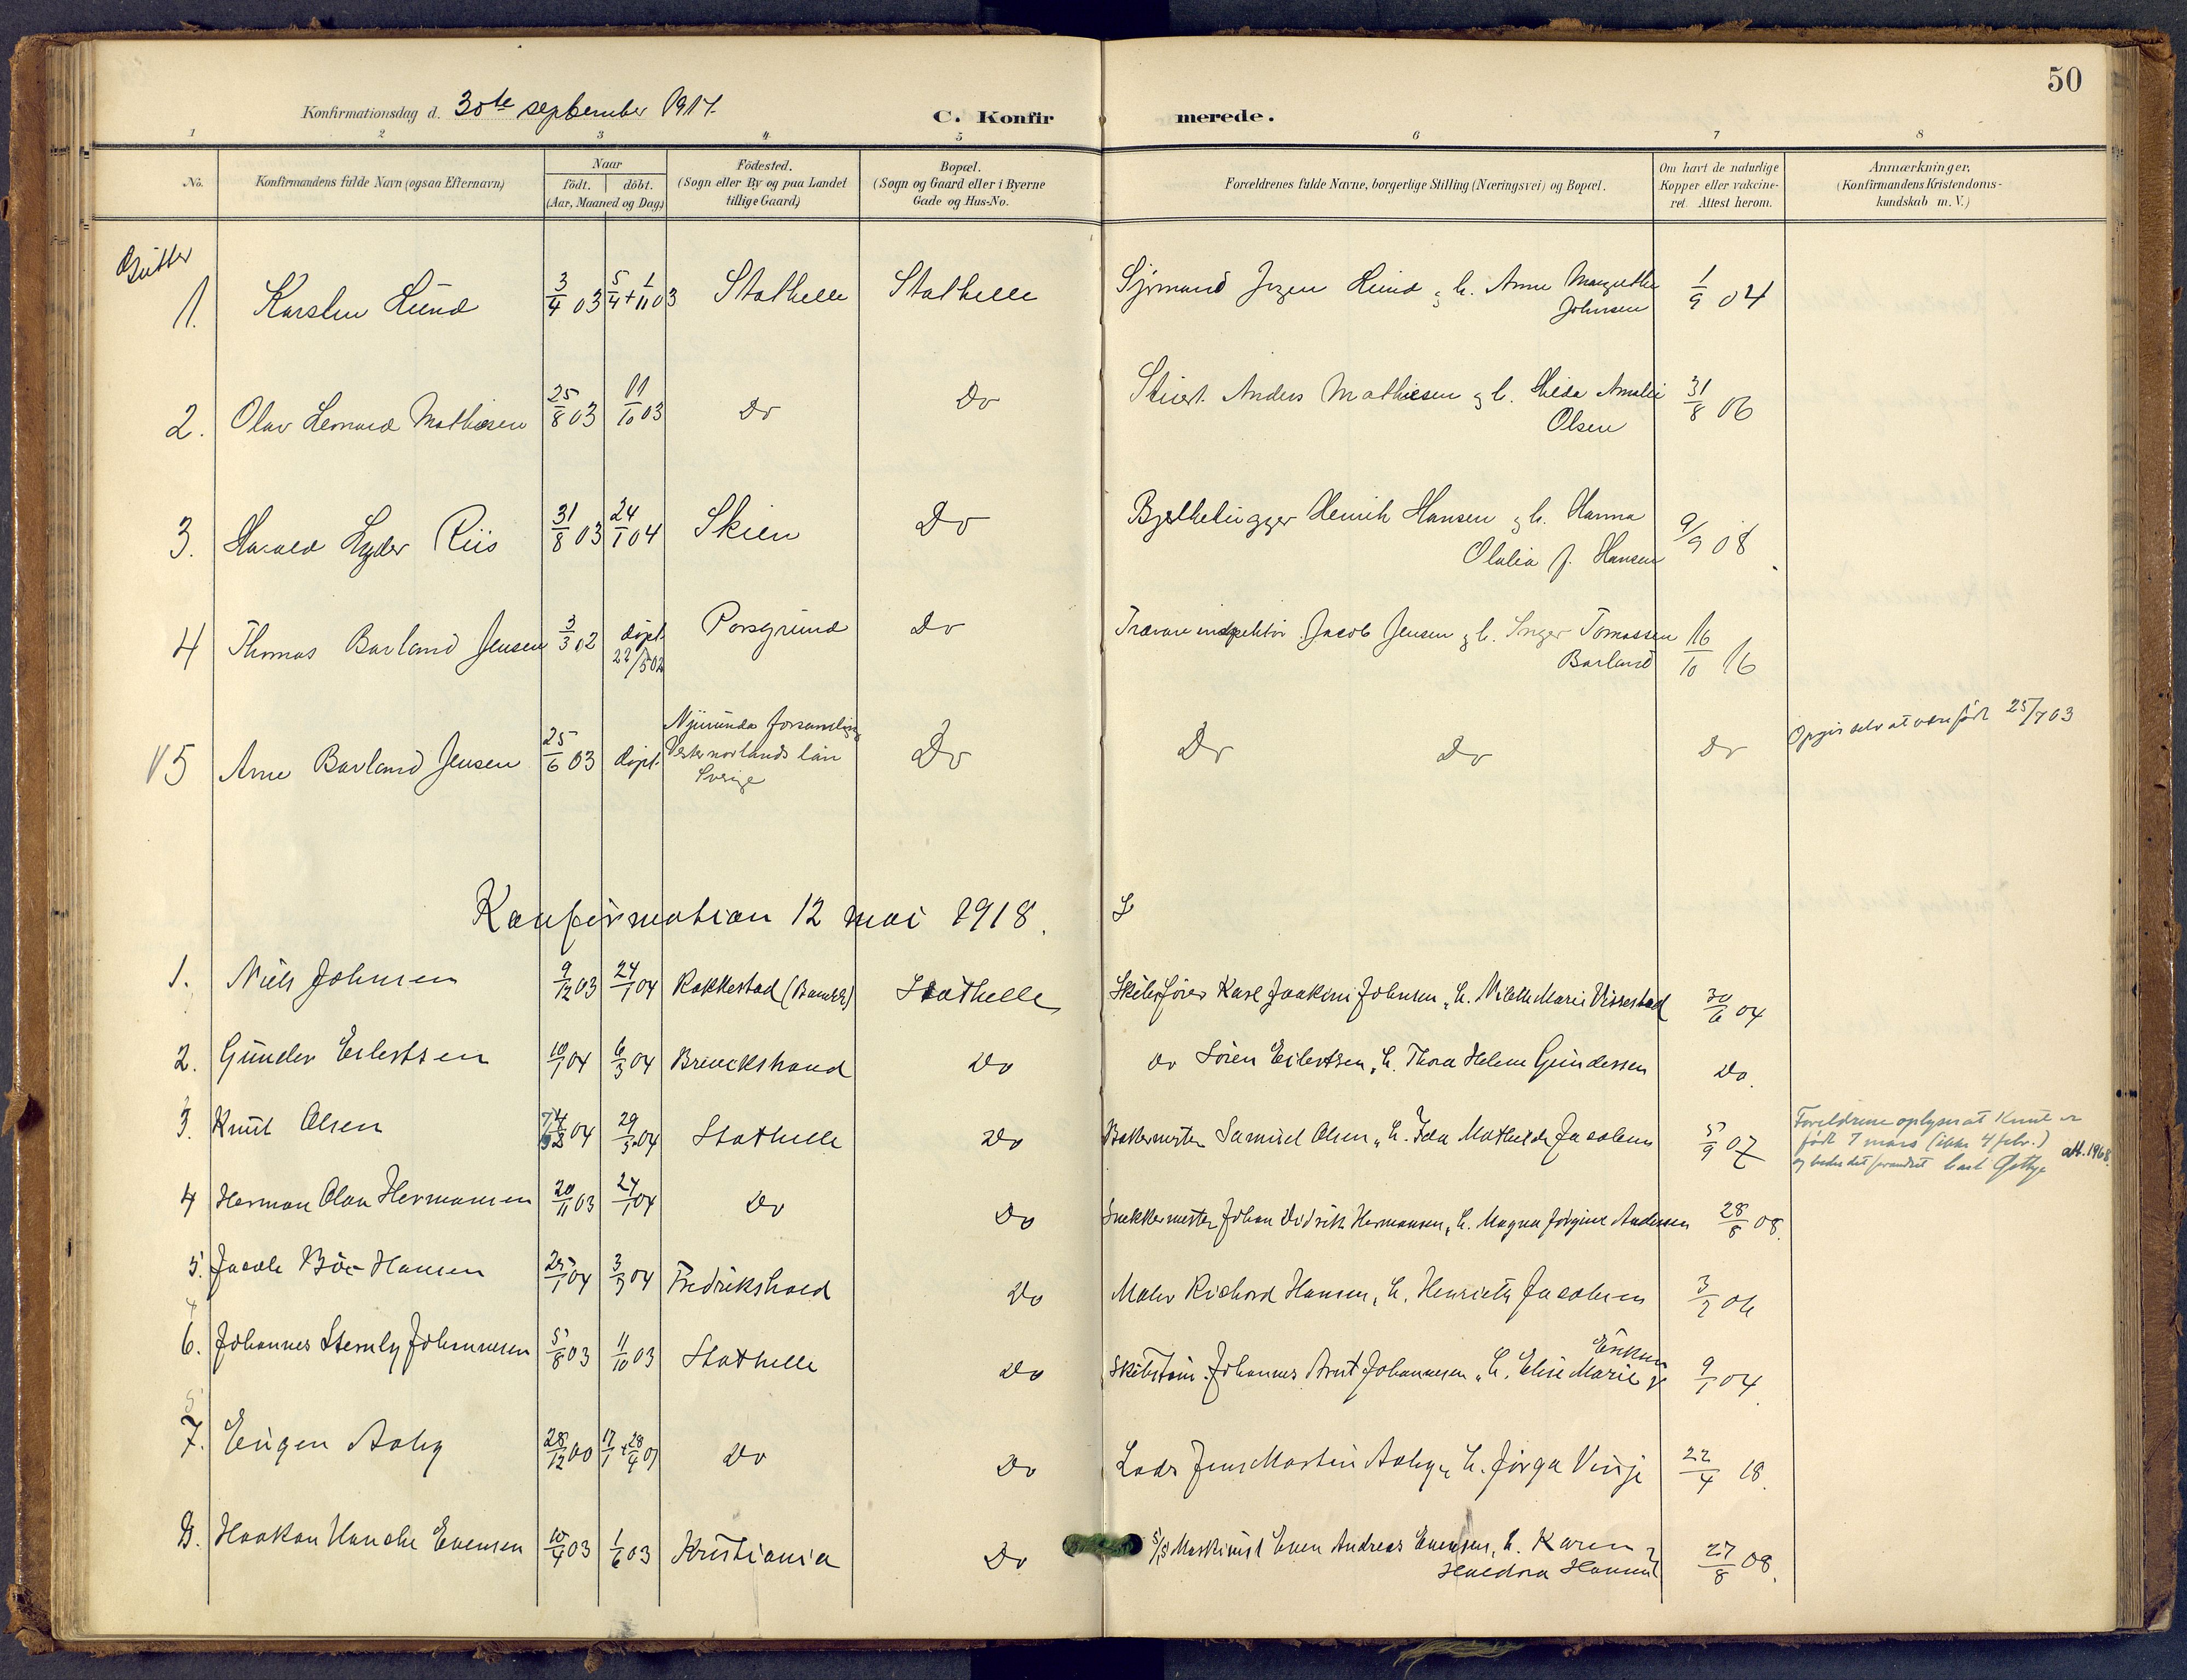 50
Konfirmationsdag d. 30te september 1917.
C. Konfirmerede.
1 2 3 4 5 6 7 8
No.
Konfirmandens fulde Navn (ogsaa Efternavn)
Naar
födt. döbt.
(Aar, Maaned og Dag)
Födested.
(Sogn eller By og paa Landet
tillige Gaard)
Bopæl.
(Sogn og Gaard eller i Byerne
Gade og Hus-No.
Forældrenes fulde Navne, borgerlige Stilling (Næringsvei) og Bopæl.
Om havt de naturlige
Kopper eller vakcine-
ret. Attest herom.
Anmærkninger,
(Konfirmandens Kristendoms-
kundskab m. V.)
Gutter
1. Karsten Lund 3/4 03 5/4 + 1/11 03 Stathelle Stathelle Sjömand Jrgen Lund g h. Anne Margrethe
Johnsen 1/9 04
2. Olav Lennard Mathisen 25/8 03 11/10 03 Do Do Stuert. Anders Mathiesen g h. Hilda Amalie
Olsen 31/8 06
3. Harald Lyder Riis 31/8 03 24/1 04 Skien Do Henrik Hansen g h. Hanna
Olalia f. Hansen 9/9 08
4 Thomas Barland Jensen 3/3 02 døpt Porsgrund Do Trævareinspektör Jacob Jensen g h. Inger Tomassen
22/5 02 Barland 16/10 16
5 Arne Barland Jensen 25/6 03 døpt. Njurunda forsamling
Vesternorlands län
Sverige Do Do Do Do Opgir selv at være født 25/7 03
Konfirmation 12 mai 1918.
1. Niels Johnsen 9/12 03 24/1 04 Rakkestad (Bamble) Stathelle Skibsfører Karl Joakim Johnsen, h. Marie Vissestad 30/6 04
2. Gunder Eilertsen 10/1 04 6/3 04 Brevikstrand Do Do Søren Eilertsen, h. Thora Helene Gundersen Do.
3. Knut Olsen 04 29/5 04 Stathelle Do Bakermester Samuel Olsen, h. Ida Mathilde Jacobsen 5/9 07
Foreldrene oplyser at Knut er
født 7 mars (ikke 4 febr.)
og bedes det forandret att. 1968.
4 Herman Olan Hermansen 20/11 03 24/1 04 Do Do Snekkermester Johan Didrik Hermansen, h. Magna Jørgine Andersen 28/8 08.
5. Jacob Böe Hansen 25/1 04 3/3 04 Fredrikshald Do Maler Richard Hansen, h. Henriette Jacobsen 3/2 06
6. Johannes Stemly Johannesen 5/8 03 11/10 03 Stathelle Do Johannes Arnt Johannesen, h. Elise Marie
9/1 04
7. Eugen Aaby 28/12 00 17/1 + 28/4 01 Do Do Lods Jens Martin Aaby, h. Jörga Vinje 22/4 18.
8. Haakon Hanche Evensen 10/4 03 1/6 03 Kristiania Do Maskinist Even Andreas Evensen, h. Karen
Haldora Hansen 27/8 08.